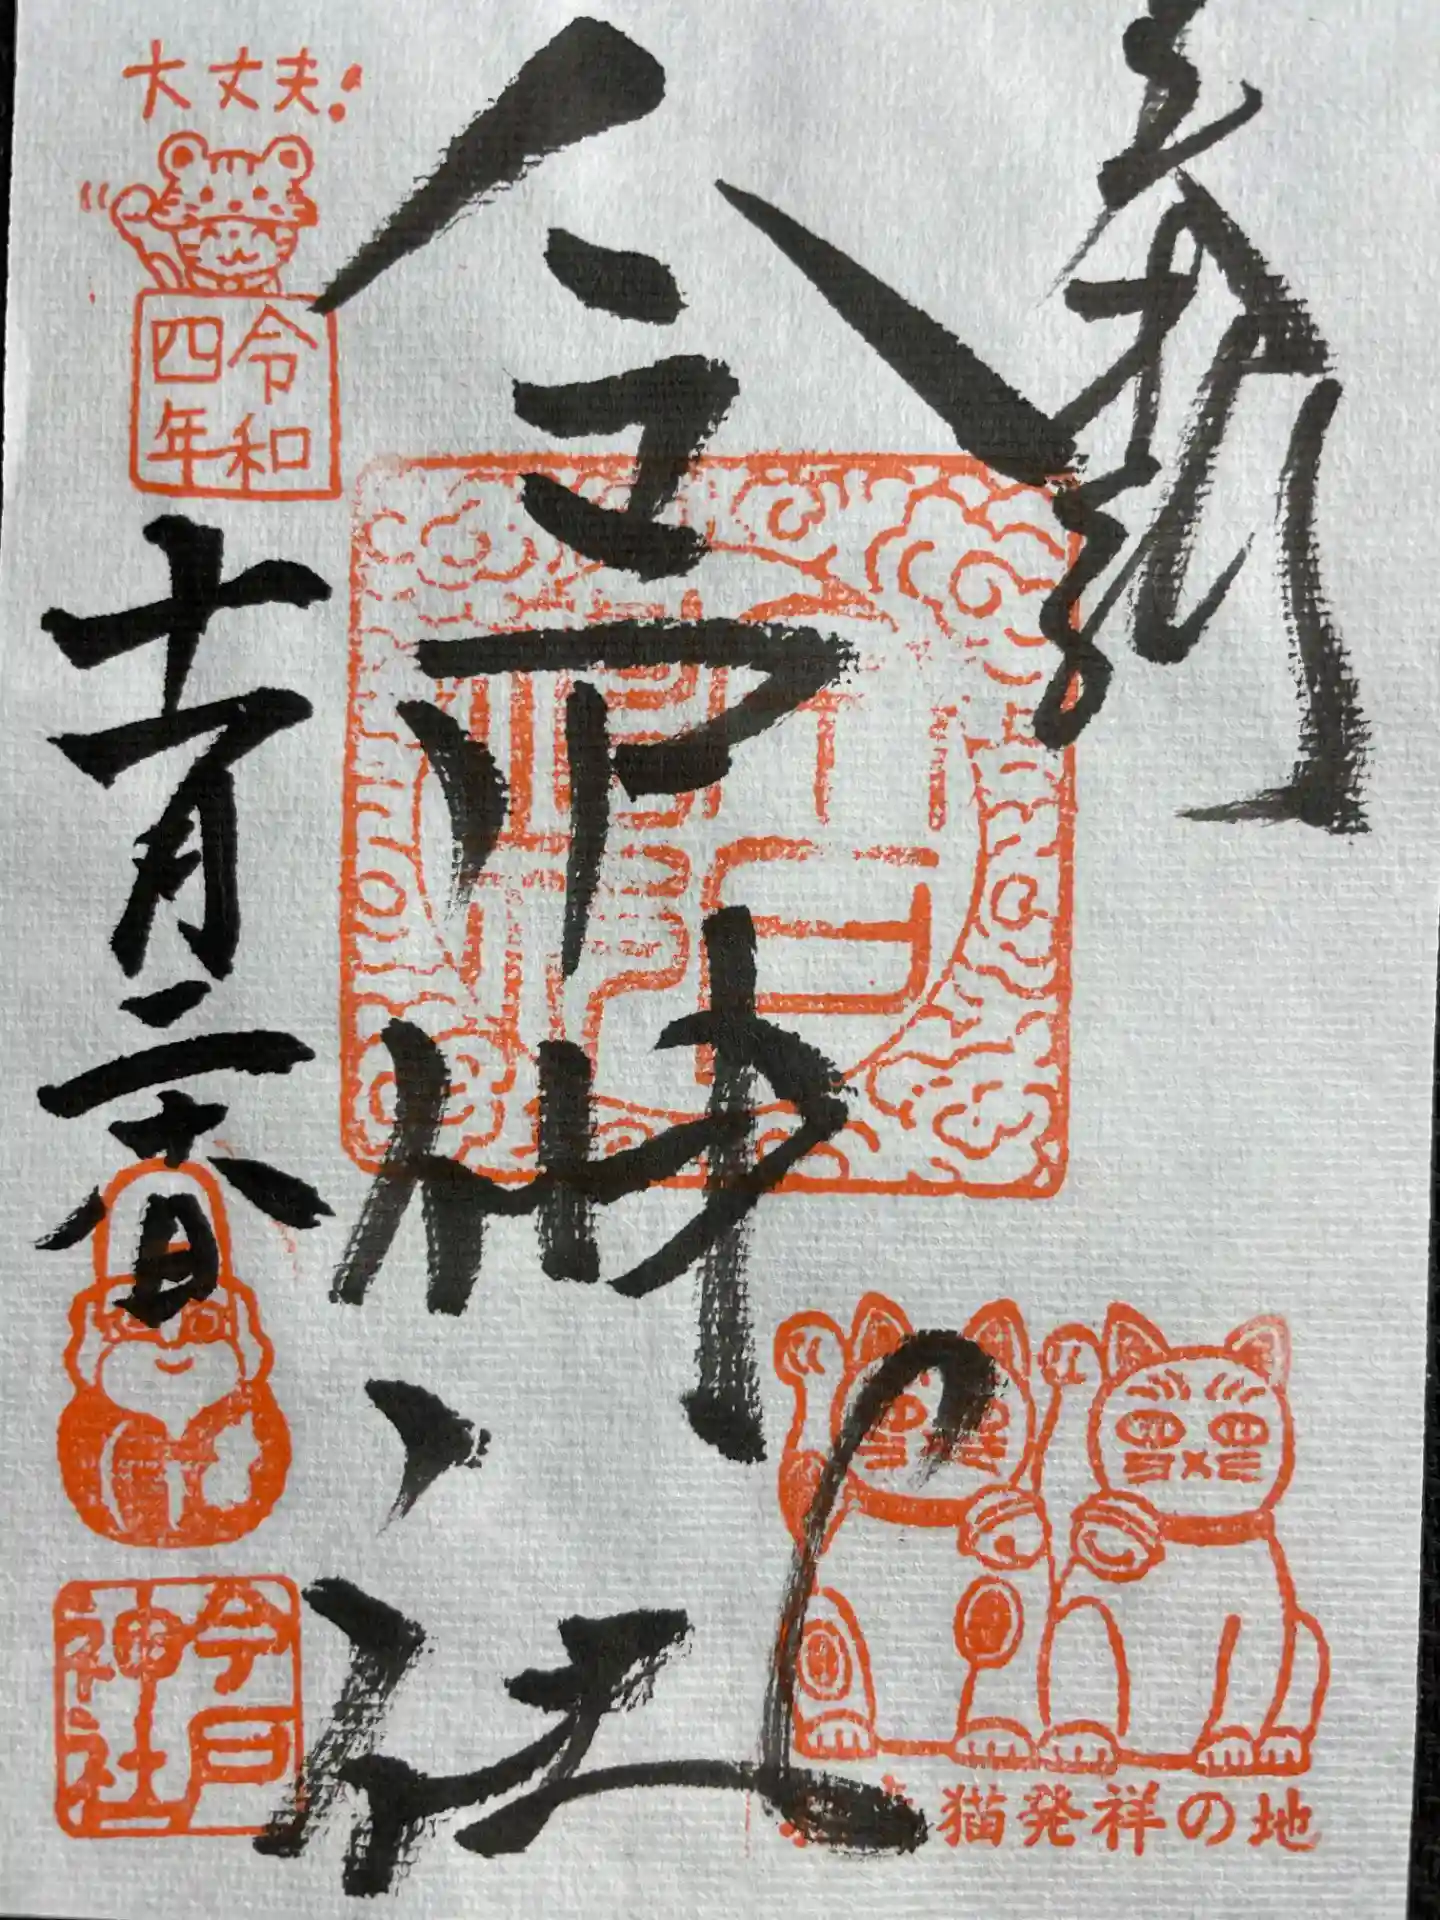 奉拝
今戸神社
大丈夫!
令和
四年
十一月二十六日
今戸
神社
招き猫発祥の地
今戸
神社